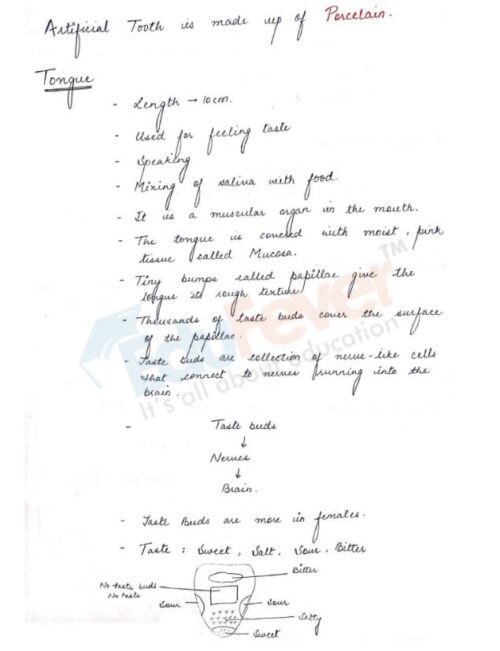 Artificial Tooth is made up of Porcelain.
Tongue
- Length → 10cm.
- Used for feeling taste
- Speaking
- Mixing of saliva with food.
- It is a muscular organ in the mouth.
- The tongue is covered with moist, pink
tissue called Mucosa.
- Tiny bumps called papillae give the
tongue its rough texture.
- Thousands of taste buds cover the surface
of the papillae.
- Taste buds are collection of nerve-like cells
that connect to nerves running into the
brain.
EduFever
TM
It's all about education
- Taste buds
↓
Nerves
↓
Brain.
- Taste Buds are more in females.
- Taste : Sweet, Salt, Sour, Bitter
Bitter
No taste buds
No taste
Sour
Sour
Salty
Sweet